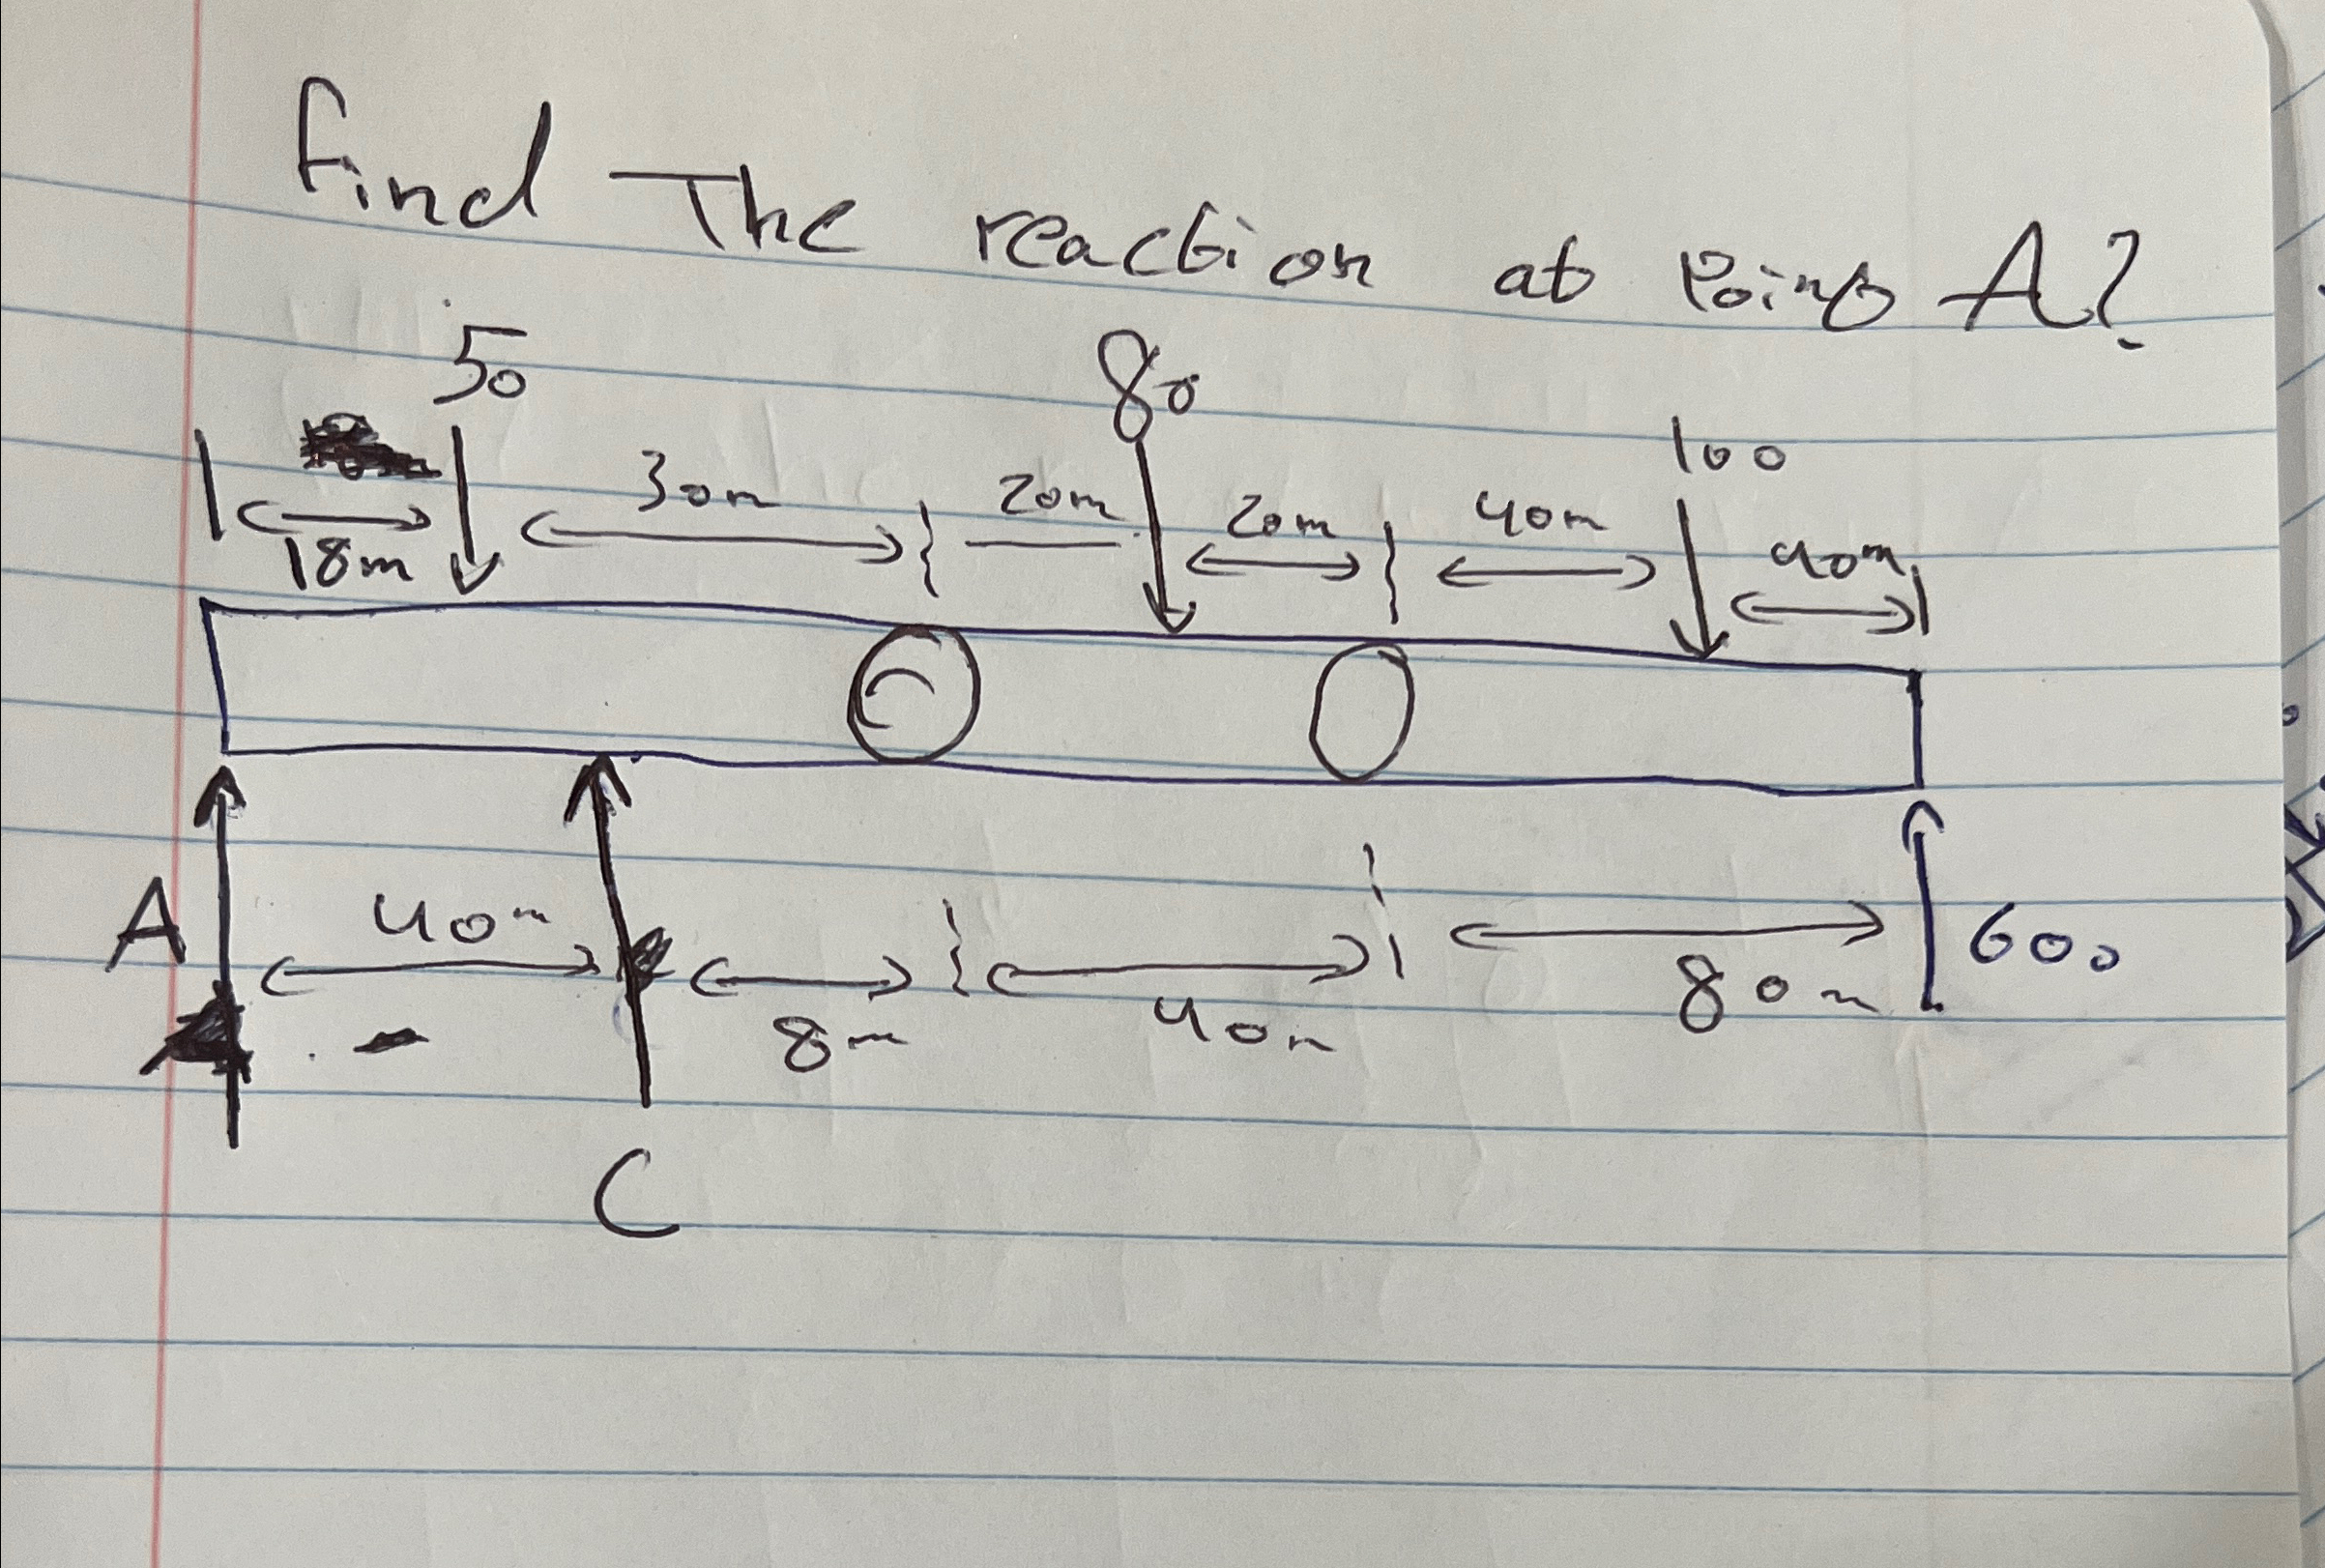 Find The reaction at Point A?
50
80
100
30m
20m
20m
40m
40m
18m
A
40m
8m
40m
80m
600
C